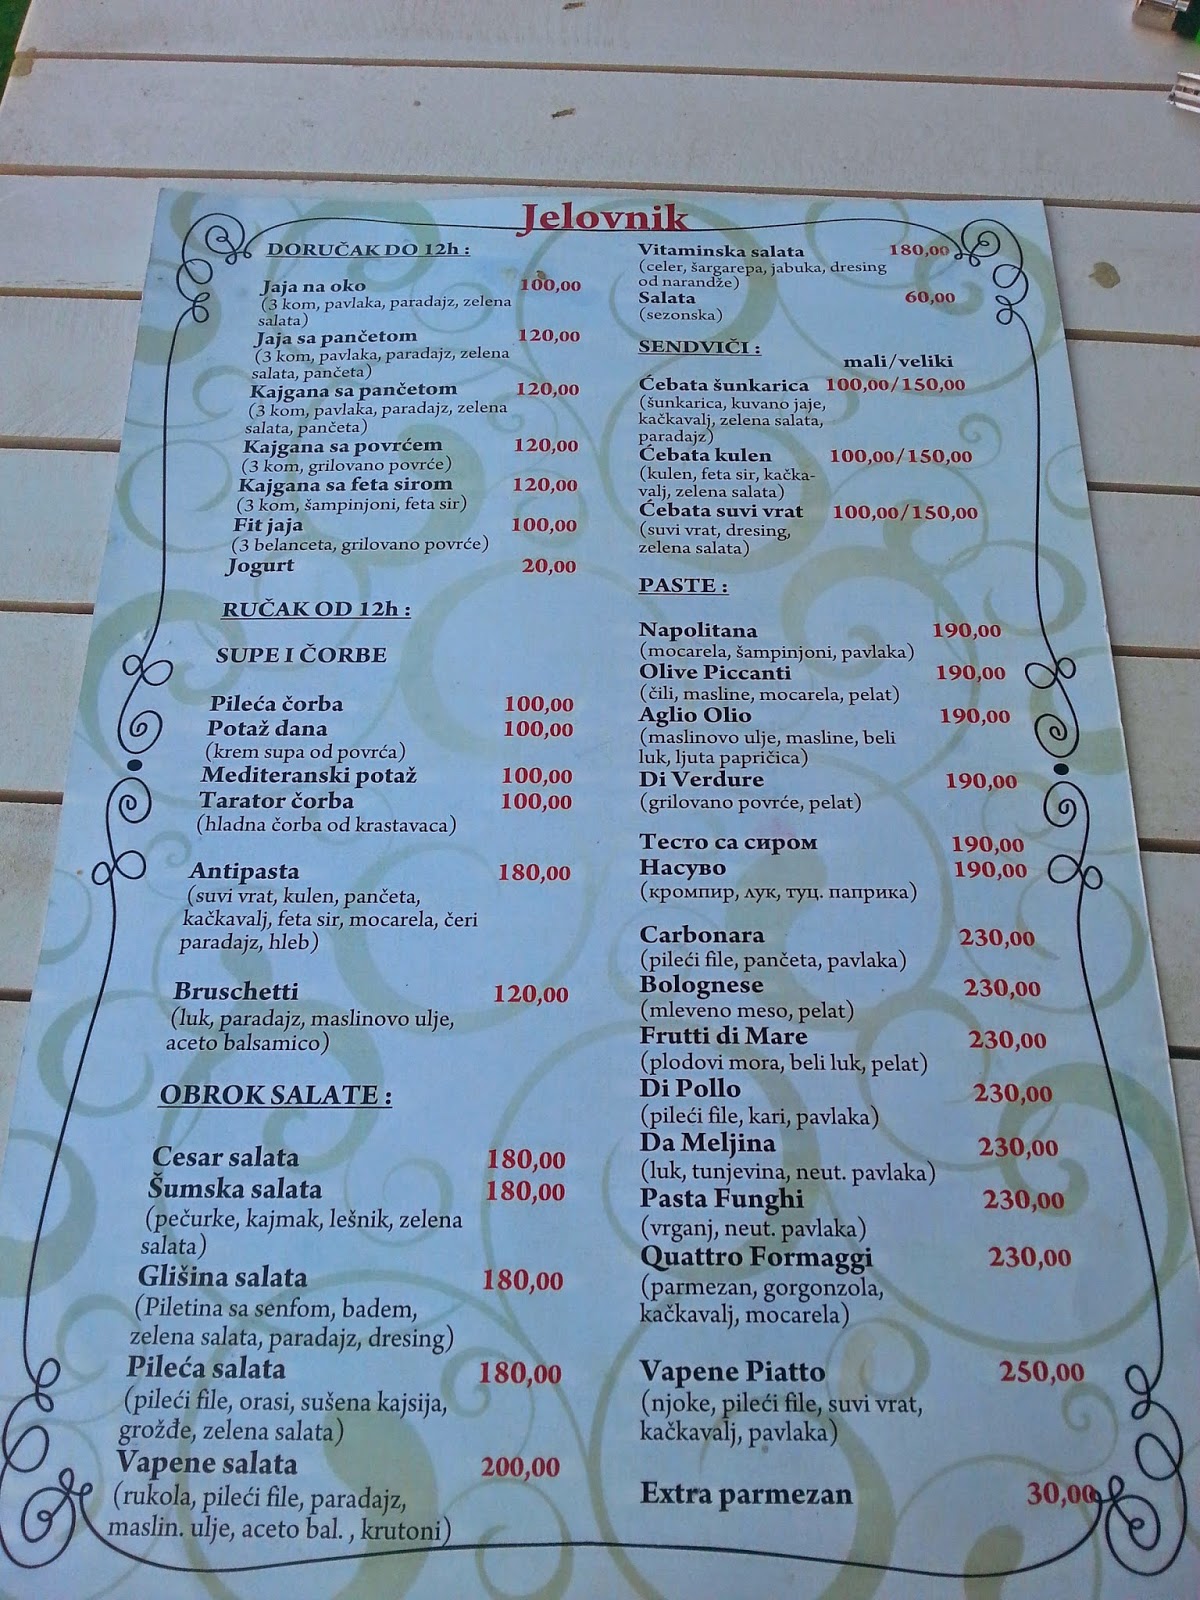 Jelovnik
DORUČAK DO 12h :
Jaja na oko 100,00
(3 kom, pavlaka, paradajz, zelena
salata)
Jaja sa pančetom 120,00
(3 kom, pavlaka, paradajz, zelena
salata, pančeta)
Kajgana sa pančetom 120,00
(3 kom, pavlaka, paradajz, zelena
salata, pančeta)
Kajgana sa povrćem 120,00
(3 kom, grilovano povrće)
Kajgana sa feta sirom 120,00
(3 kom, šampinjoni, feta sir)
Fit jaja 100,00
(3 belanceta, grilovano povrće)
Jogurt 20,00
RUČAK OD 12h :
SUPE I ČORBE
Pileća čorba 100,00
Potaž dana 100,00
(krem supa od povrća)
Mediteranski potaž 100,00
Tarator čorba 100,00
(hladna čorba od krastavaca)
Antipasta 180,00
(suvi vrat, kulen, pančeta,
kačkavalj, feta sir, mocarela, čeri
paradajz, hleb)
Bruschetti 120,00
(luk, paradajz, maslinovo ulje,
aceto balsamico)
OBROK SALATE :
Cesar salata 180,00
Šumska salata 180,00
(pečurke, kajmak, lešnik, zelena
salata)
Glišina salata 180,00
(Piletina sa senfom, badem,
zelena salata, paradajz, dresing)
Pileća salata 180,00
(pileći file, orasi, sušena kajsija,
grožđe, zelena salata)
Vapene salata 200,00
(rukola, pileći file, paradajz,
maslin. ulje, aceto bal. , krutoni)
Vitaminska salata 180,00
(celer, šargarepa, jabuka, dresing
od narandže)
Salata 60,00
(sezonska)
SENDVIČI :
mali/veliki
Ćebata šunkarica 100,00/150,00
(šunkarica, kuvano jaje,
kačkavalj, zelena salata,
paradajz)
Ćebata kulen 100,00/150,00
(kulen, feta sir, kačka-
valj, zelena salata)
Ćebata suvi vrat 100,00/150,00
(suvi vrat, dresing,
zelena salata)
PASTE :
Napolitana 190,00
(mocarela, šampinjoni, pavlaka)
Olive Piccanti 190,00
(čili, masline, mocarela, pelat)
Aglio Olio 190,00
(maslinovo ulje, masline, beli
luk, ljuta papričica)
Di Verdure 190,00
(grilovano povrće, pelat)
Тесто са сиром 190,00
Насуво 190,00
(кромпир, лук, туц. паприка)
Carbonara 230,00
(pileći file, pančeta, pavlaka)
Bolognese 230,00
(mleveno meso, pelat)
Frutti di Mare 230,00
(plodovi mora, beli luk, pelat)
Di Pollo 230,00
(pileći file, kari, pavlaka)
Da Meljina 230,00
(luk, tunjevina, neut. pavlaka)
Pasta Funghi 230,00
(vrganj, neut. pavlaka)
Quattro Formaggi 230,00
(parmezan, gorgonzola,
kačkavalj, mocarela)
Vapene Piatto 250,00
(njoke, pileći file, suvi vrat,
kačkavalj, pavlaka)
Extra parmezan 30,00